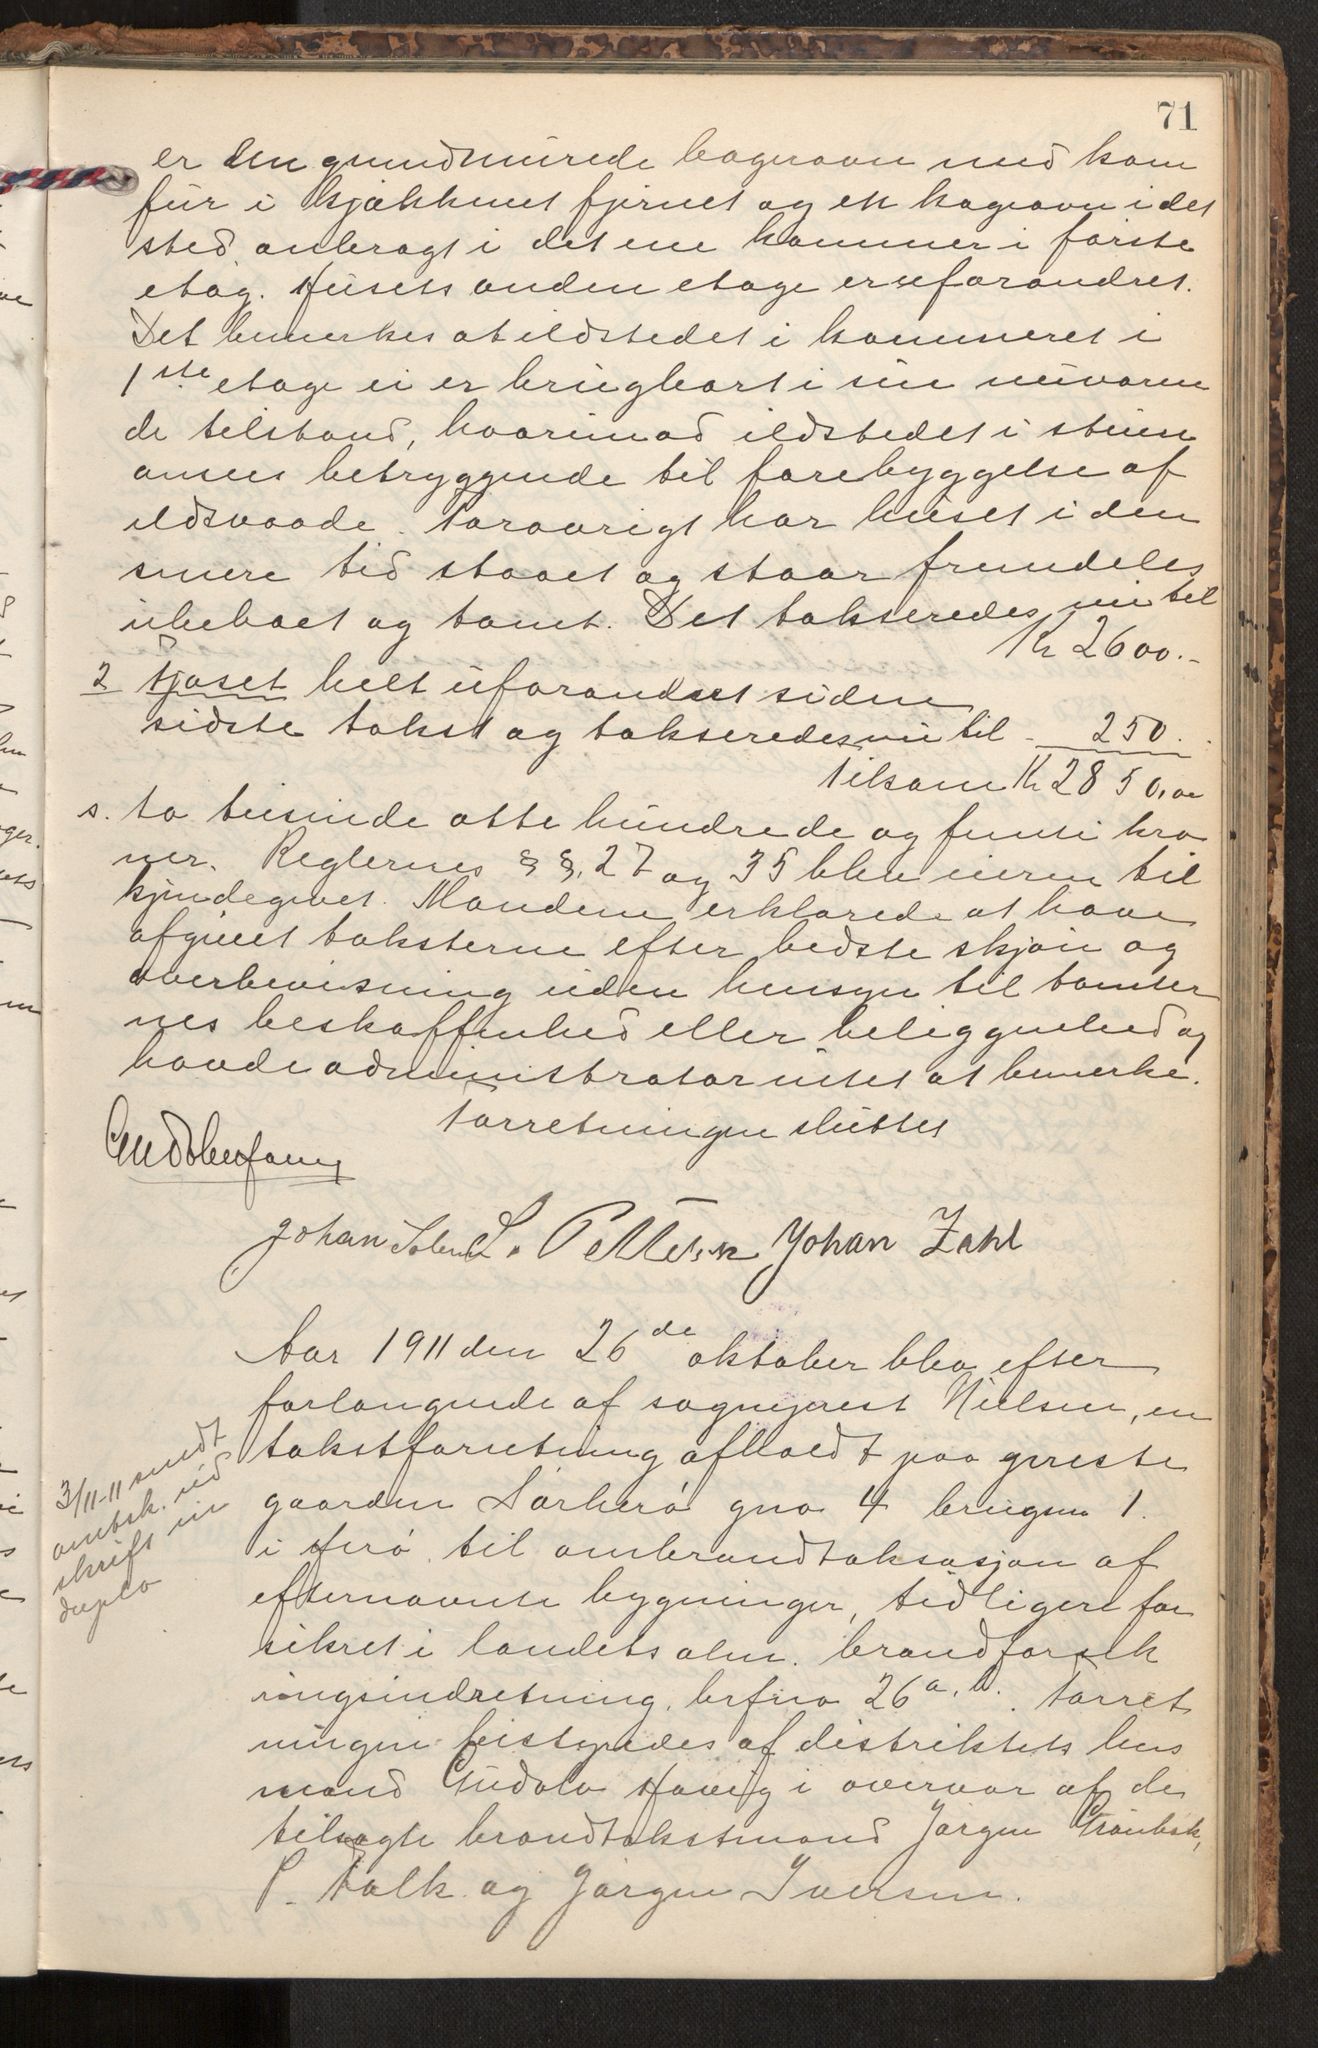 71
er den grundmurede bageovn med kom
fur i kjøkkenet fjernet og en kogeovn i det
sted anbragt i det ene kammer i første
etag. Husets anden etage er uforandret.
Det bemerkes at ildstedet i kammeret i
1ste etage ei er brugbart i sin nuværen
de tilstand, hvorimod ildstedet i stuen
ansees betryggende til forebyggelse af
ildsvaade. Forøvrigt har huset i den
senere tid staaet og staar fremdeles
ubeboet og tomt. Det takseredes nu til
Kr 2600.-
2 Fjøset helt uforandret siden
sidste takst og takseredes nu til - 250.
Tilsam Kr 2850,00
s. to tusinde otte hundrede og femti kro
ner. Reglernes §§, 27 og 35 blev eieren til
kjendegivet. Mændene erklærede at have
afgivet taksterne efter bedste skjøn og
overbevisning uden hensyn til tomter
nes beskaffenhed eller beliggenhed og
havde administrator intet at bemerke.
Forretningen sluttet
Johan L. Pettersen Johan Zahl
Aar 1911 den 26de oktober blev efter
forlangende af sogneprest Nielsen, en
takstforretning afholdt paa preste
gaarden Sørherø gno 4 brugsn 1.
i Herø til ombrandtaksasjon af
efternævnte bygninger, tidligere for
sikret i landets alm. brandforsik
ringsindretning, brfno 26 a, b. Forret
ningen bestyredes af distriktets lens
mand Gudolv Havig i overvær af de
tilsagte brandtakstmænd Jørgen Grønbek,
P. Falk og Jørgen Iversen.
3/11-11 sendt
ombsk. ud
skrift in
duplo